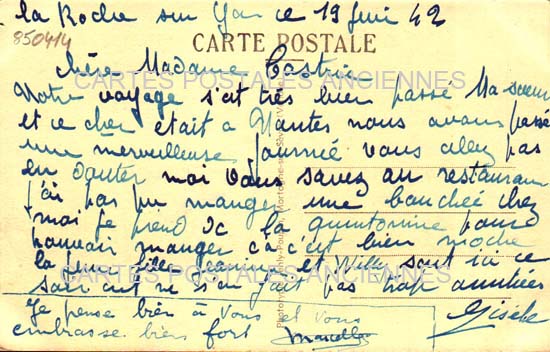 la Roche sur Yon ce 19 Juin 42
850414
CARTE POSTALE
Chère Madame
CARTES POSTALES ANCIENNES
Notre voyage s'est très bien passé Ma soeur
et ce cher était a Nantes nous avons passé
une merveilleuse journée vous allez pas
en douter moi vous savez au restaurant
j'ai pas pu manger une bouchée chez
moi je prend de la quintonine pour
pouvoir manger ça c'est bien moche
la et Willy sont ici ce
CARTES POSTALES ANCIENNES
soir ont ne s'en fait pas trop
Je pense bien à vous et vous
embrasse bien fort Marcelle
Gisèle